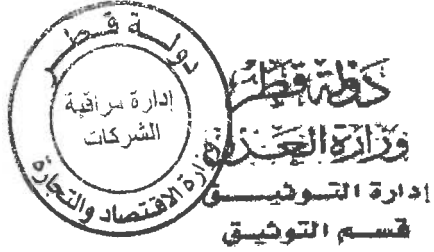 دولة قطر
إدارة مراقبة
الشركات
وزارة الاقتصاد والتجارة
دولة قطر
وزارة العدل
إدارة التوثيق
قسم التوثيق